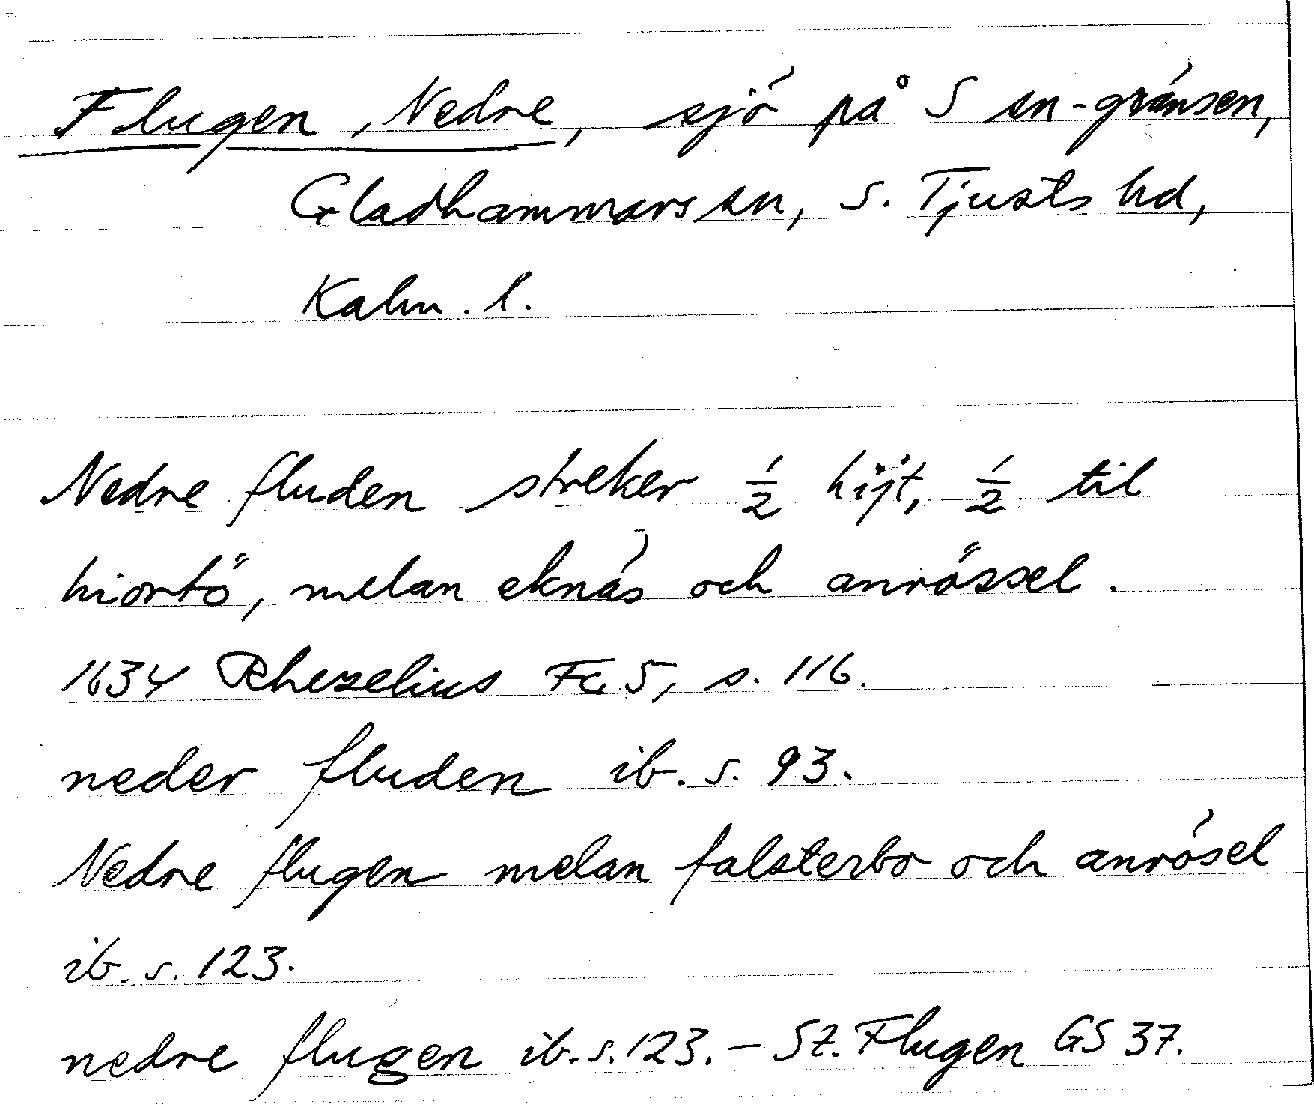 Flugen, Nedre, sjö på S sn-gränsen,
Gladhammars sn, S. Tjusts hd,
Kalm. l.
Nedre fluden streker ½ hijt, ½ til
hiortö, melan eknäs och anrössel.
1634 Rhezelius Fc 5, s. 116.
neder fluden ib. s. 93.
Nedre flugen melan falsterbo och anrösel
ib. s. 123.
nedre flugen ib. s. 123. – St. Flugen GS 37.